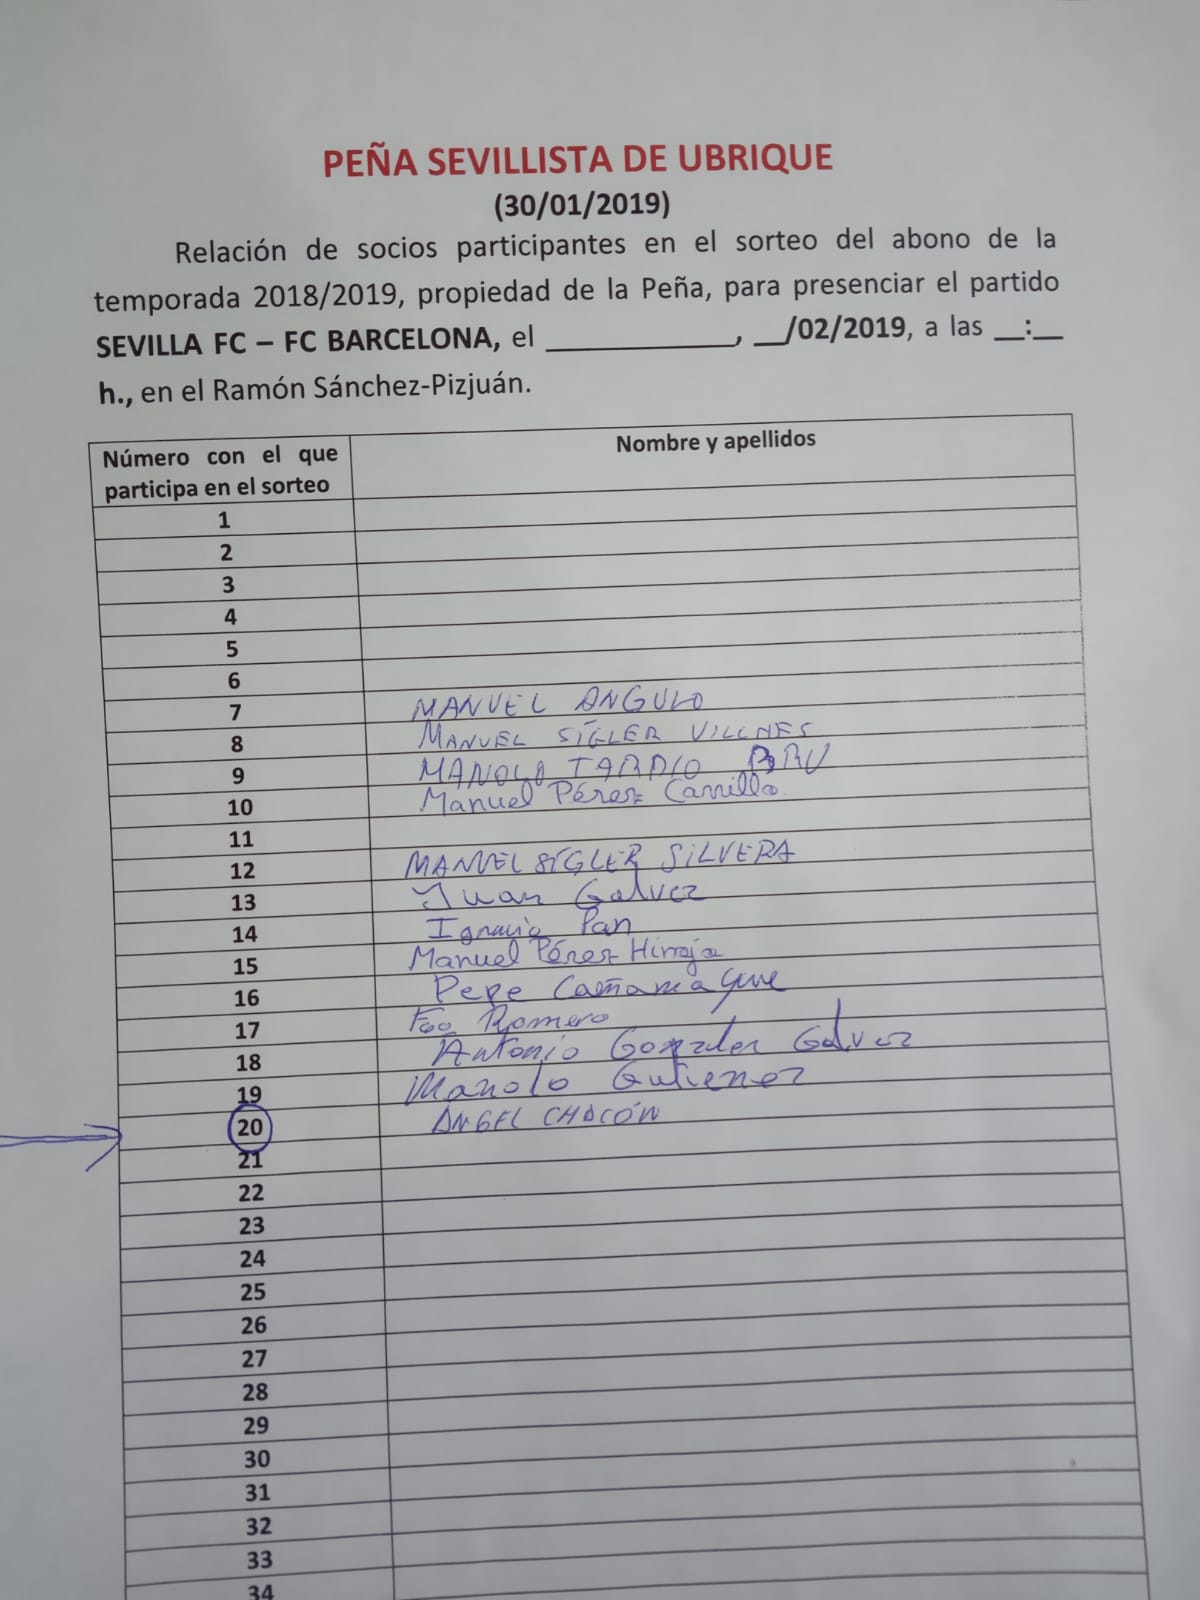 PEÑA SEVILLISTA DE UBRIQUE
(30/01/2019)
Relación de socios participantes en el sorteo del abono de la
temporada 2018/2019, propiedad de la Peña, para presenciar el partido
SEVILLA FC – FC BARCELONA, el ____________, __/02/2019, a las __:__
h., en el Ramón Sánchez-Pizjuán.
Número con el que participa en el sorteo Nombre y apellidos
1
2
3
4
5
6
7 MANUEL ANGULO
8 MANUEL SÍGLER VILLNES
9 MANOLO TARDIO BRU
10 Manuel Pérez Carrillo
11
12 MANUEL SÍGLER SILVERA
13 Juan Galvez
14 Ignacio Pan
15 Manuel Pérez Hinojo
16 Pepe Cañamaque
17 Fco Romero
18 Antonio Gonzalez Galvez
19 Manolo Gutierrez
20 ANGEL CHACÓN
21
22
23
24
25
26
27
28
29
30
31
32
33
34